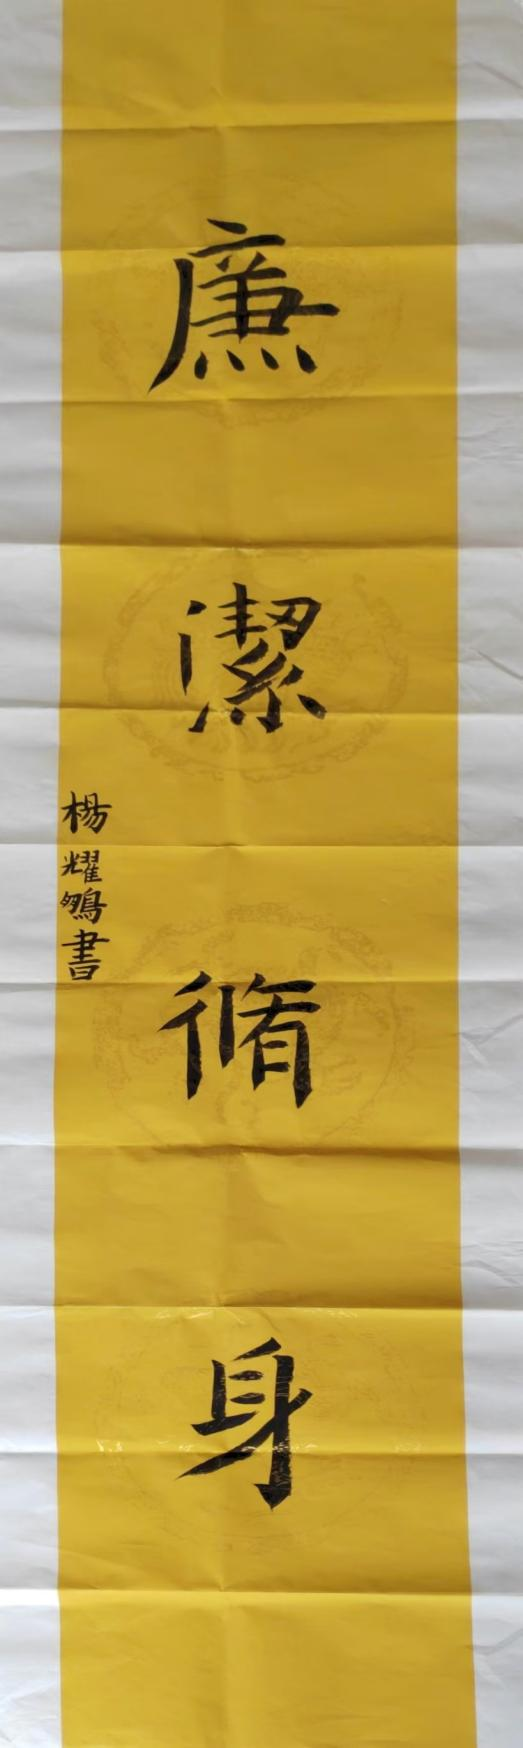 廉潔脩身
楊耀鵬書